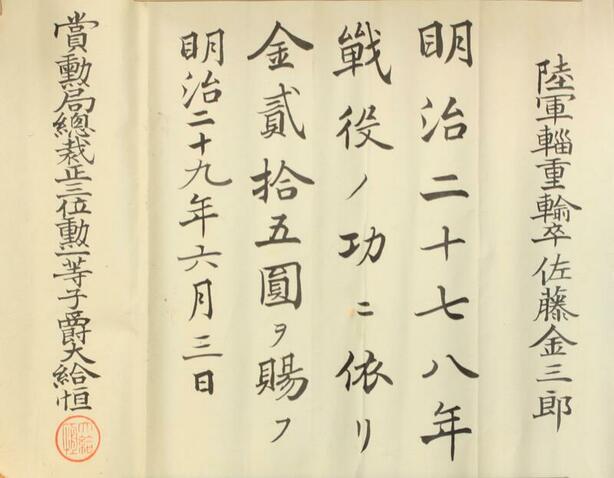 陸軍輜重輸卒佐藤金三郎
明治二十七八年
戦役ノ功ニ依リ
金貳拾五圓ヲ賜フ
明治二十九年六月三日
賞勲局總裁正三位勲一等子爵大給恒